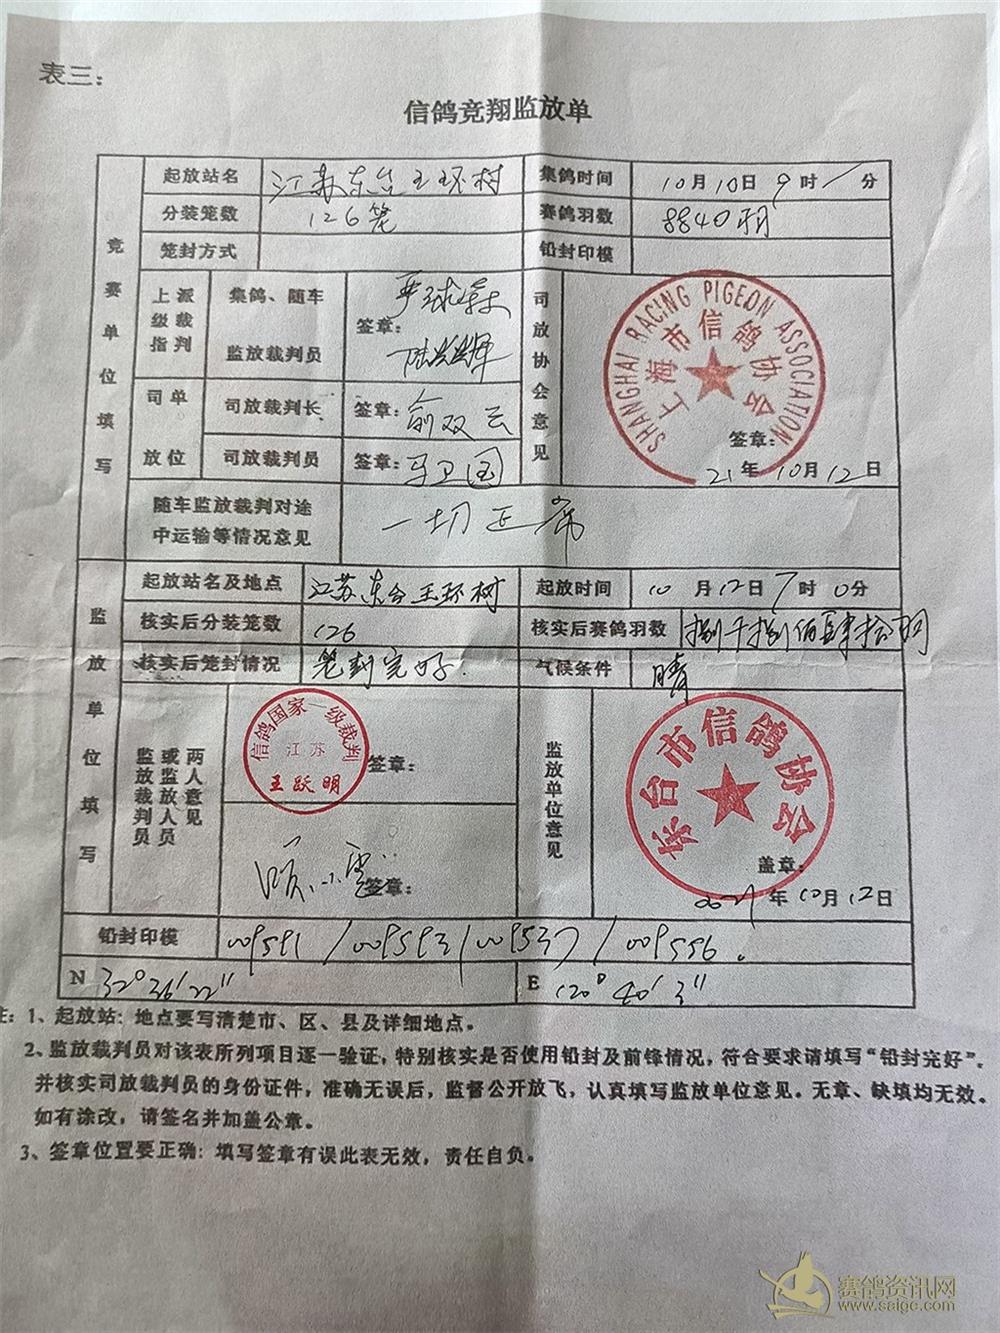 表三：
信鸽竞翔监放单
竞赛单位填写
起放站名 江苏东台王环树 集鸽时间 10月10日9时/分
分装笼数 126笼 赛鸽羽数 8840羽
笼封方式 铅封印模
上级指派裁判 集鸽、随车监放裁判员 签章：
司放单位 司放裁判长 签章：俞双云
司放裁判员 签章：马卫国
司放协会意见 SHANGHAI RACING PIGEON ASSOCIATION 上海市信鸽协会 签章： 21年10月12日
随车监放裁判对途中运输等情况意见 一切正常
监放单位填写
起放站名及地点 江苏东台王环树 起放时间 10月12日7时0分
核实后分装笼数 126 核实后赛鸽羽数 捌千捌佰肆拾羽
核实后笼封情况 笼封完好. 气候条件 晴
监放裁判员或监放人员两人意见 信鸽国家一级裁判 江苏 王跃明 签章：
签章：
监放单位意见 东台市信鸽协会 盖章： 2021年10月12日
铅封印模 009591/009593/009537/009556.
N 32°36′22″ E 120°40′3″
注：1、起放站：地点要写清楚市、区、县及详细地点。
2、监放裁判员对该表所列项目逐一验证，特别核实是否使用铅封及前锋情况，符合要求请填写“铅封完好”.
并核实司放裁判员的身份证件，准确无误后，监督公开放飞，认真填写监放单位意见。无章、缺填均无效。
如有涂改，请签名并加盖公章。
3、签章位置要正确：填写签章有误此表无效，责任自负。
赛鸽资讯网
www.saigc.com